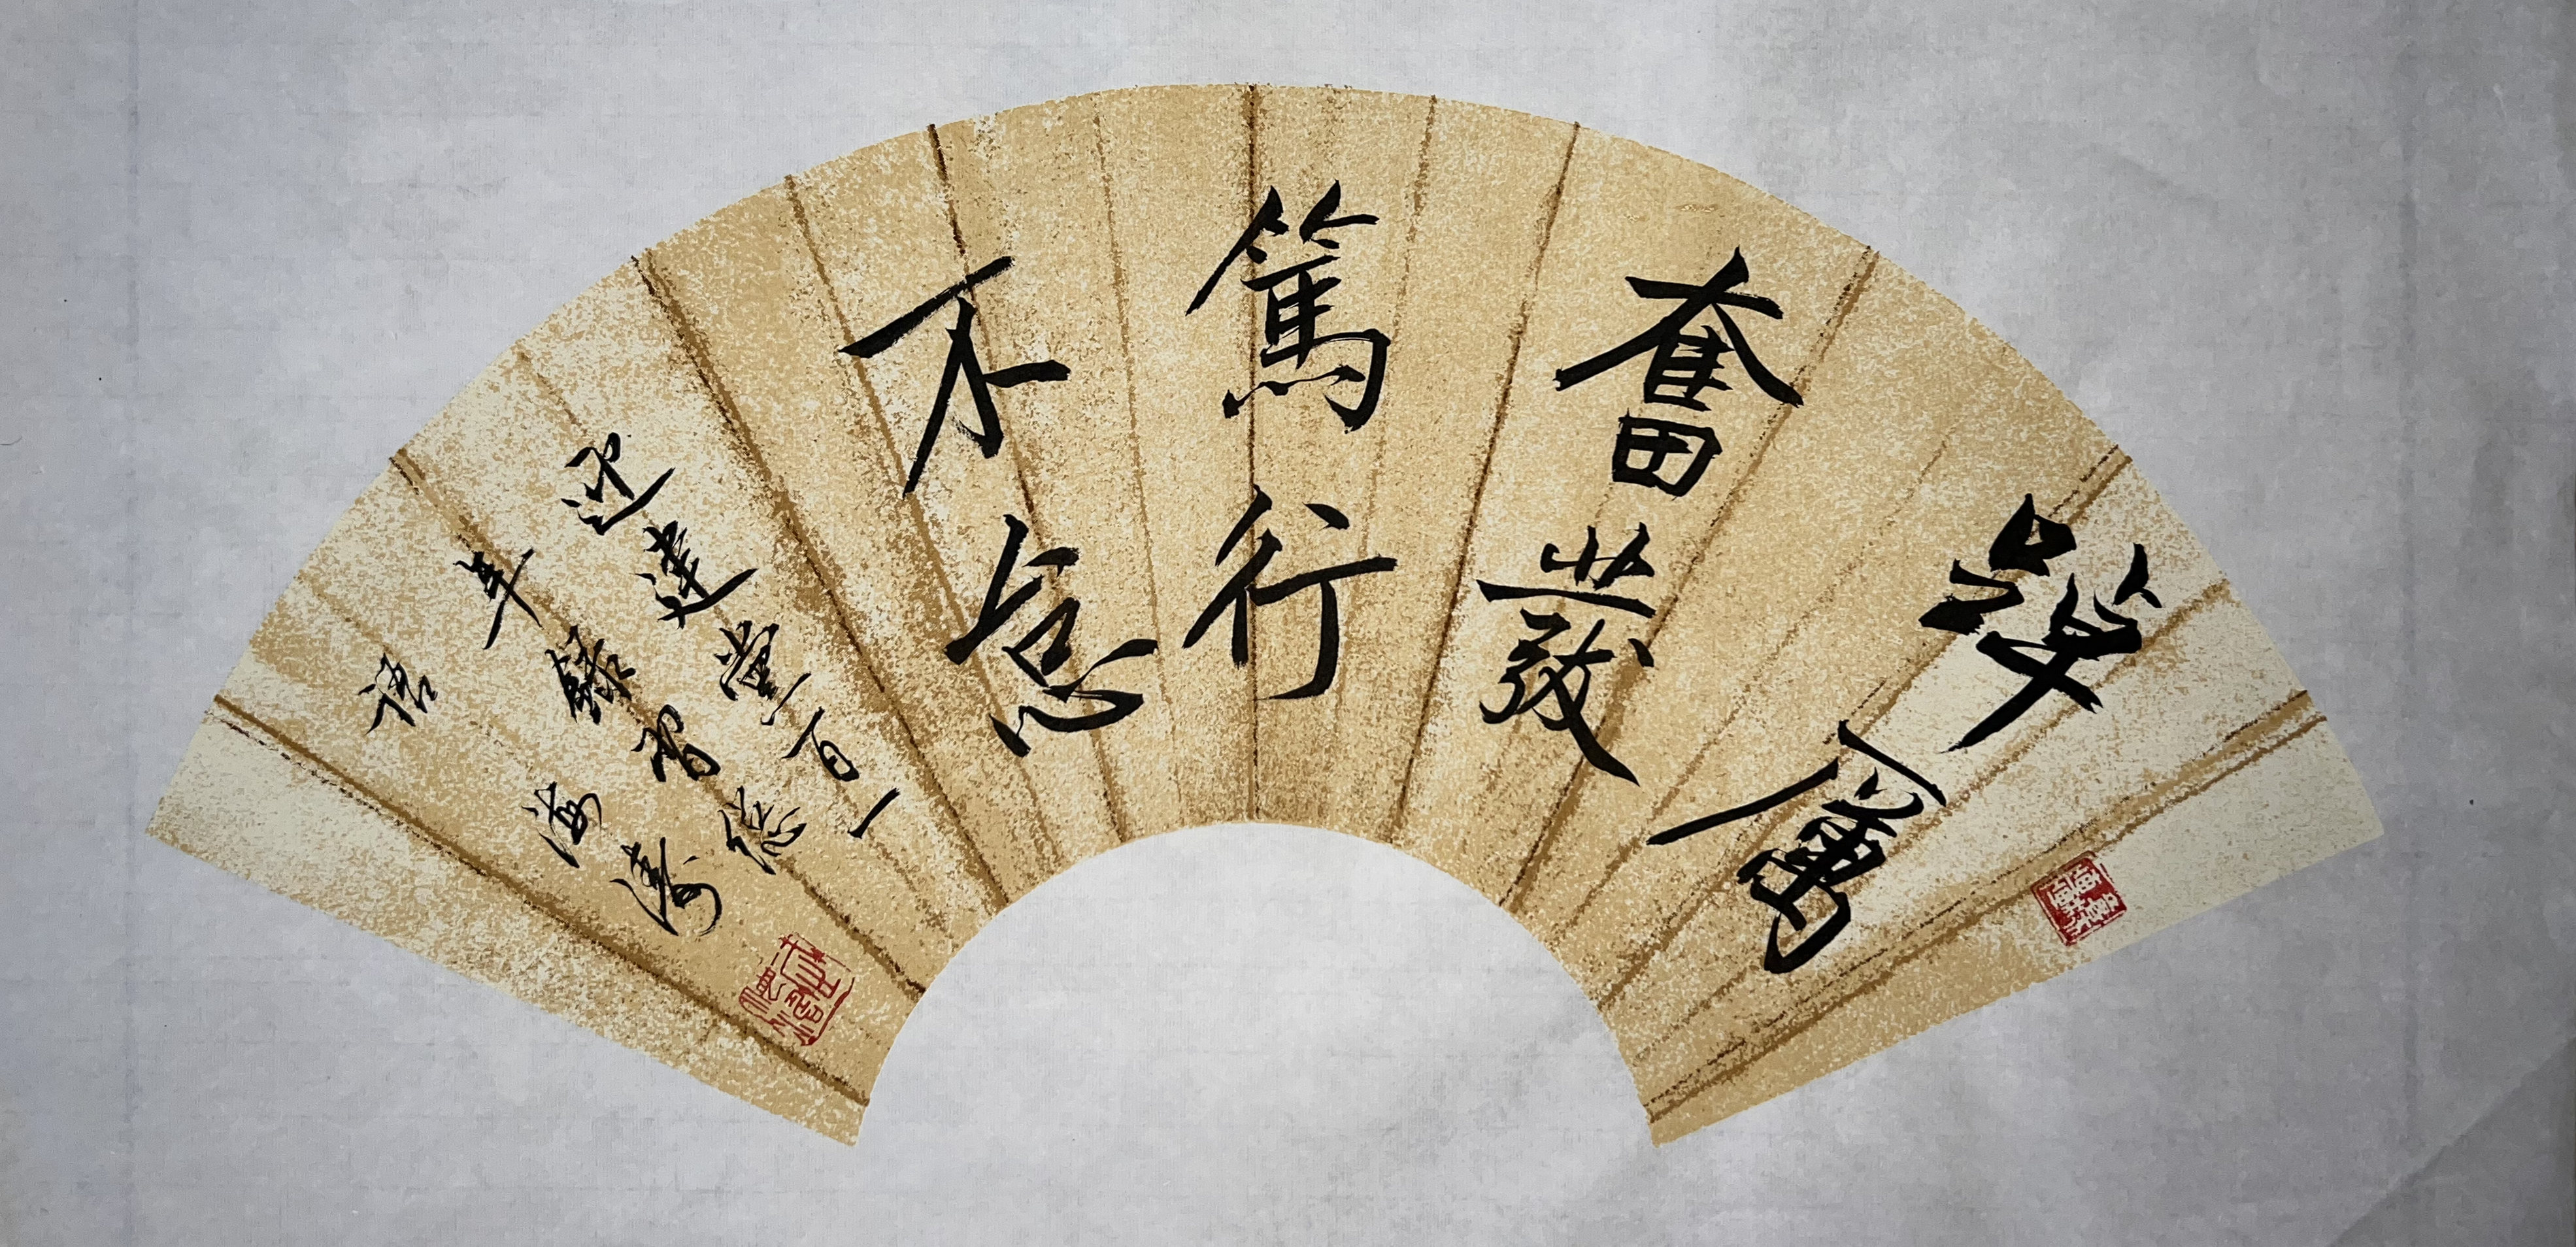 踔厲
奮發
篤行
不怠
迎建黨百一
年錄習總
語
海濤